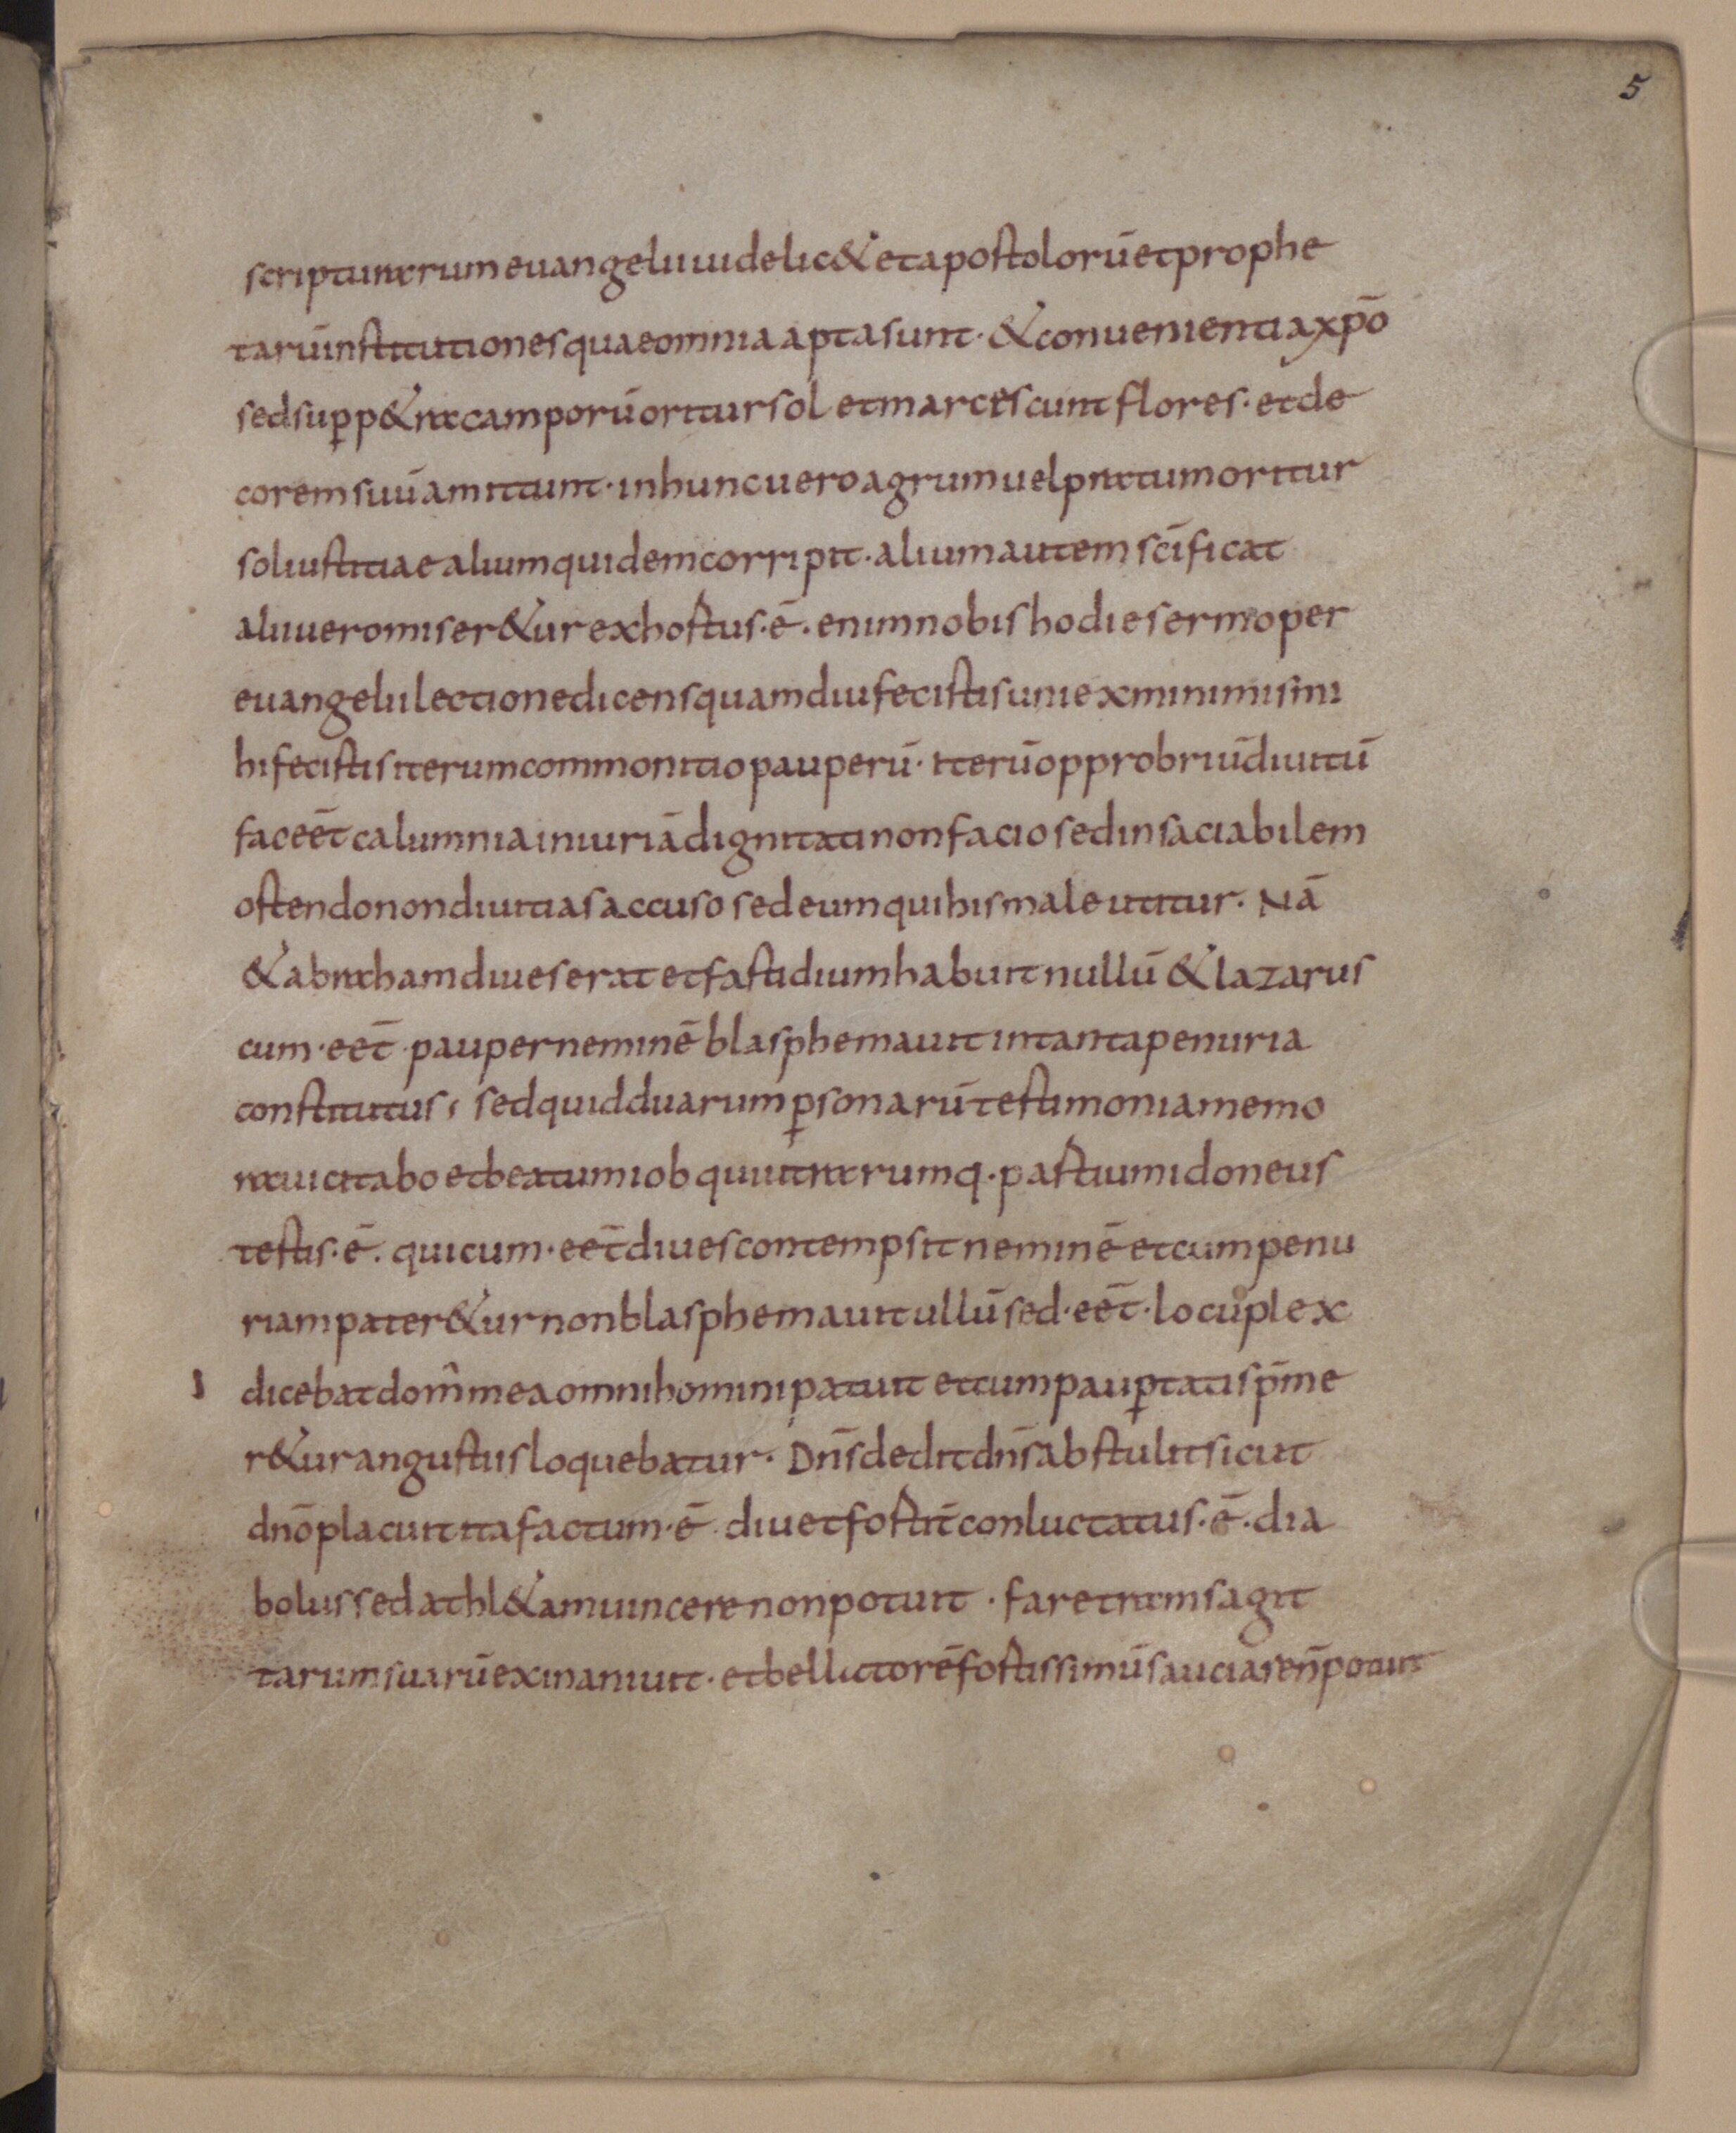 5
scripturarum euangelii uidelic& et apostolorū et prophe
tarū institutiones quae omnia apta sunt · & conuenientia xp̄o
sed sup̱ p&ra camporū oritur sol et marcescunt flores · et de
corem suū amittunt · in hunc uero agrum uel pratum oritur
sol iustitiae alium quidem corripit · alium autem sc̄ificat
alii uero miser&ur exhostus · ē · enim nobis hodie sermo per
euangelii lectione dicens quamdiu fecistis uni ex minimis mi
hi fecistis iterum commonitio pauperū · iterū opprobriū diuitū
faceēt calumnia iniuriā dignitati non facio sed insaciabilem
ostendo non diuitias accuso sed eum qui his male utitur · Nā
& abraham diues erat et fastidium habuit nullū & lazarus
cum · eēt · pauper neminē blasphemauit in tanta penuria
constitutus ; sed quid duarum p̱sonarū testimonia memo
raui citabo et beatum iob qui utrarumq · pastium idoneus
testis · ē · qui cum · eēt diues contempsit neminē et cum penu
riam pater&ur non blasphemauit ullū sed · eēt · locuplex
dicebat dom̄ mea omni homini patuit et cum paup̱tatis p̄me
r&ur angustiis loquebatur · Dn̄s dedit dn̄s abstulit sicut
dn̄o placuit ita factum · ē · diu et fostit̄ conluctatus · ē · dia
bolus sed athl&am uincere non potuit · faretram sagit
tarum suarū exinaniuit · et bellictorē fostissimū sauciare n̄ potuit